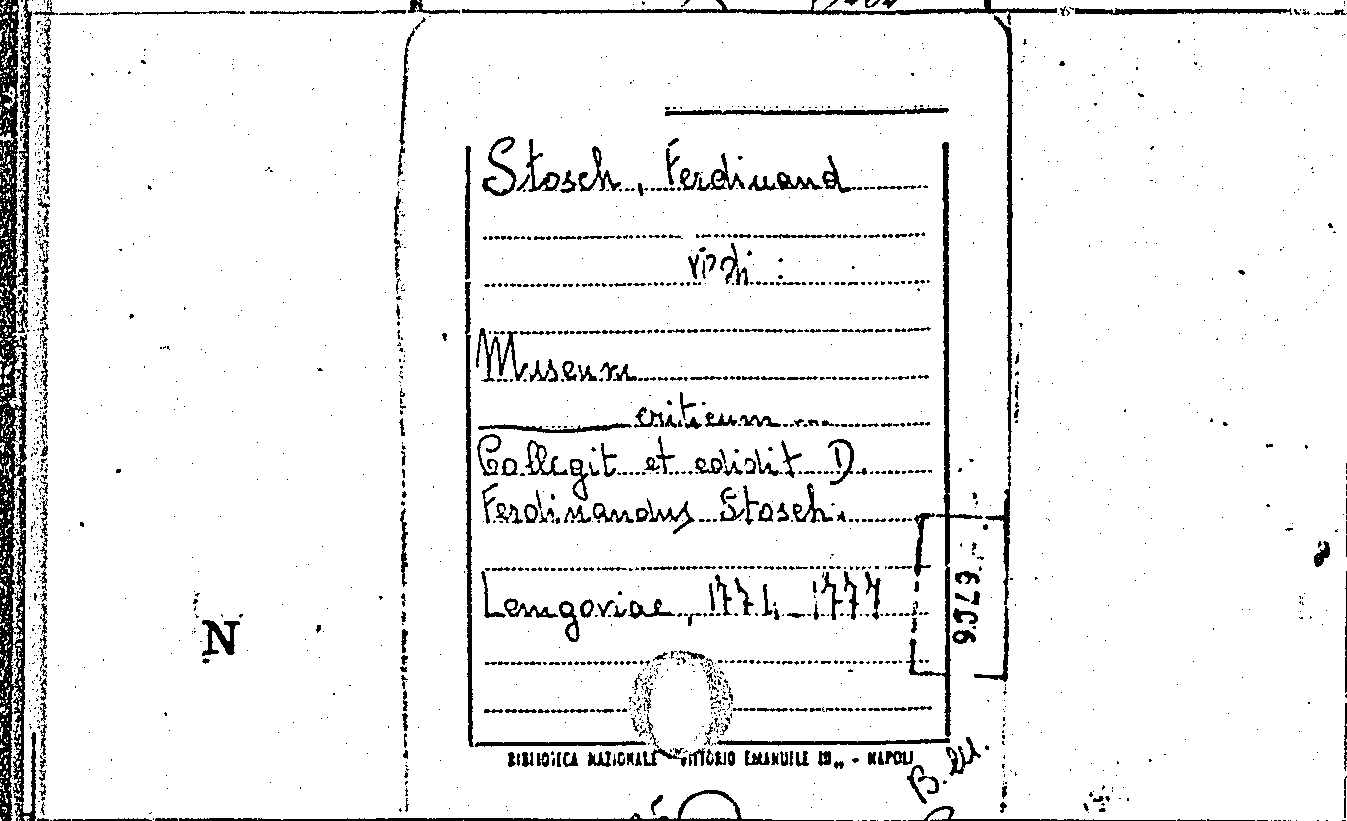 Stosch, Ferdinand
vedi :
Museum
criticum ...
Collegit et edidit D.
Ferdinandus Stosch.
Lemgoviae, 1774 - 1777
N
BIBLIOTECA NAZIONALE "VITTORIO EMANUELE III" - NAPOLI